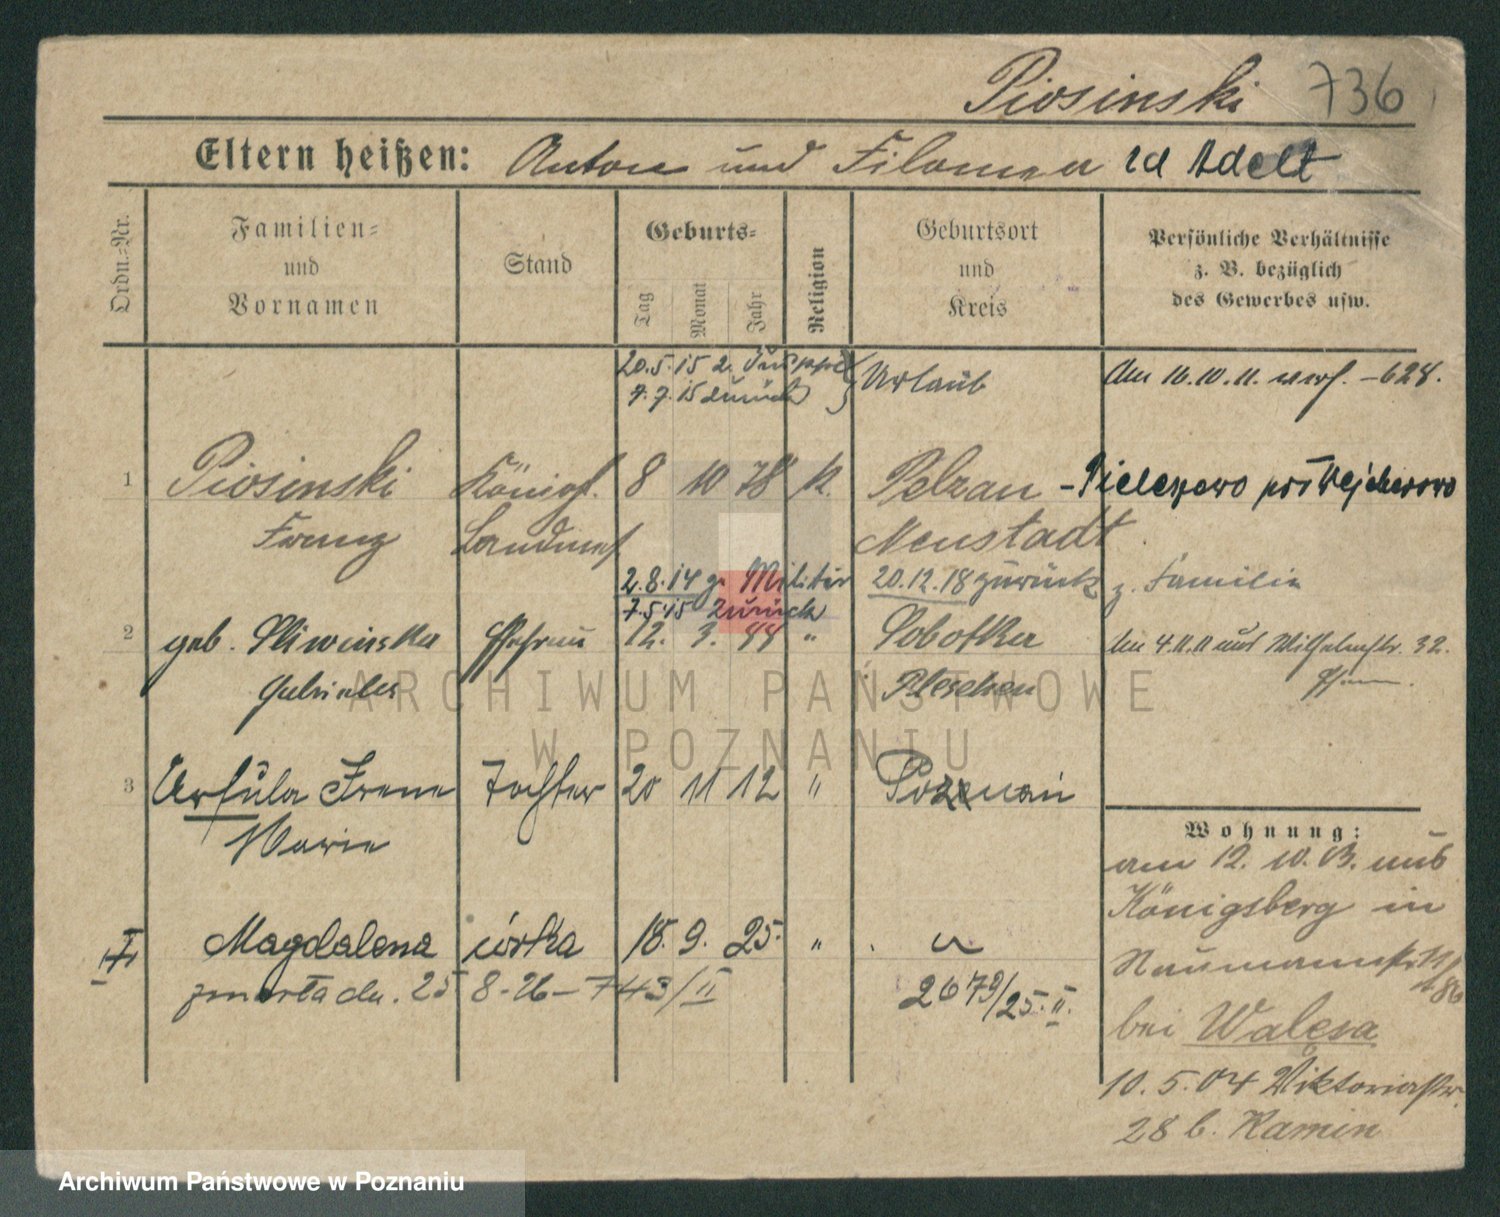 Piosinski 736
Eltern heißen: Anton und Filomena zd Adelt
Ordn.-Nr.
Familien- und Vornamen
Stand
Geburts-
Tag Monat Jahr
Religion
Geburtsort und Kreis
Persönliche Verhältnisse
z. B. bezüglich
des Gewerbes usw.
20.5.15 z. Truppe
7.7.15 zurück
Urlaub
Am 16.10.11. verh. - 628.
1 Piosinski Königl. 8 10 78 k. Pelzau - Pieleszewo pow Wejcherowo
Franz Landmes Neustadt
2.8.14 z. Militär 20.12.18 zurück z. Familie
7.5.15 zurück
2 geb. Sliwinska Ehefrau 12. 3. 88 " Sobotka
Gabriele Pleschen
Am 4.11.11 aus Wilhelmstr. 32.
3 Ursula Irene Tochter 20 11 12 " Poznań
Marie
Magdalena córka 18. 9. 25. "
zmarła dn. 25 8-26 - 743/II
2679/25. II.
Wohnung:
am 12. 10. 03. aus
Königsberg in
Naumannstr. 11
bei Walesa
10.5.04 Viktoriastr.
28 b. Kamin
ARCHIWUM PAŃSTWOWE
W POZNANIU
Archiwum Państwowe w Poznaniu